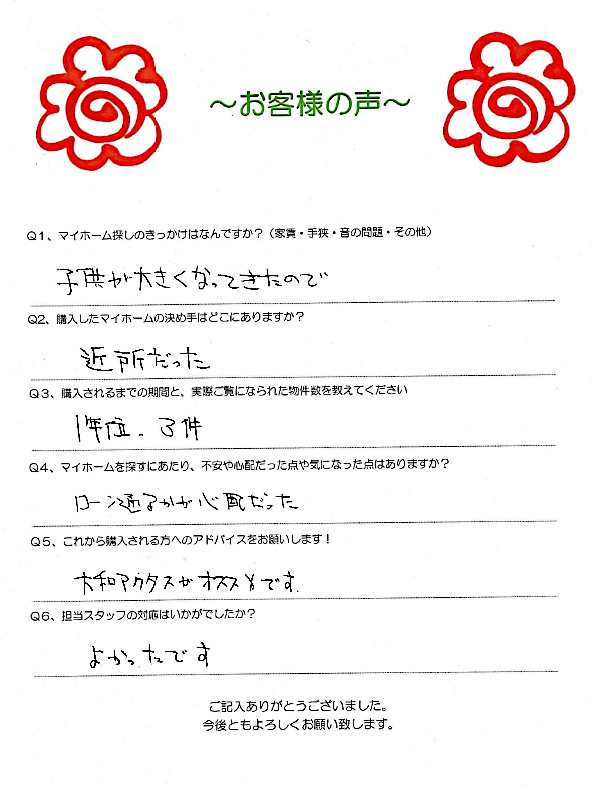 ～お客様の声～
Q1、マイホーム探しのきっかけはなんですか？（家賃・手狭・音の問題・その他）
子供が大きくなってきたので
Q2、購入したマイホームの決め手はどこにありますか？
近所だった
Q3、購入されるまでの期間と、実際ご覧になられた物件数を教えてください
1年位、3件
Q4、マイホームを探すにあたり、不安や心配だった点や気になった点はありますか？
ローン通るかが心配だった
Q5、これから購入される方へのアドバイスをお願いします！
大和アクタスがオススメです.
Q6、担当スタッフの対応はいかがでしたか？
よかったです
ご記入ありがとうございました。
今後ともよろしくお願い致します。